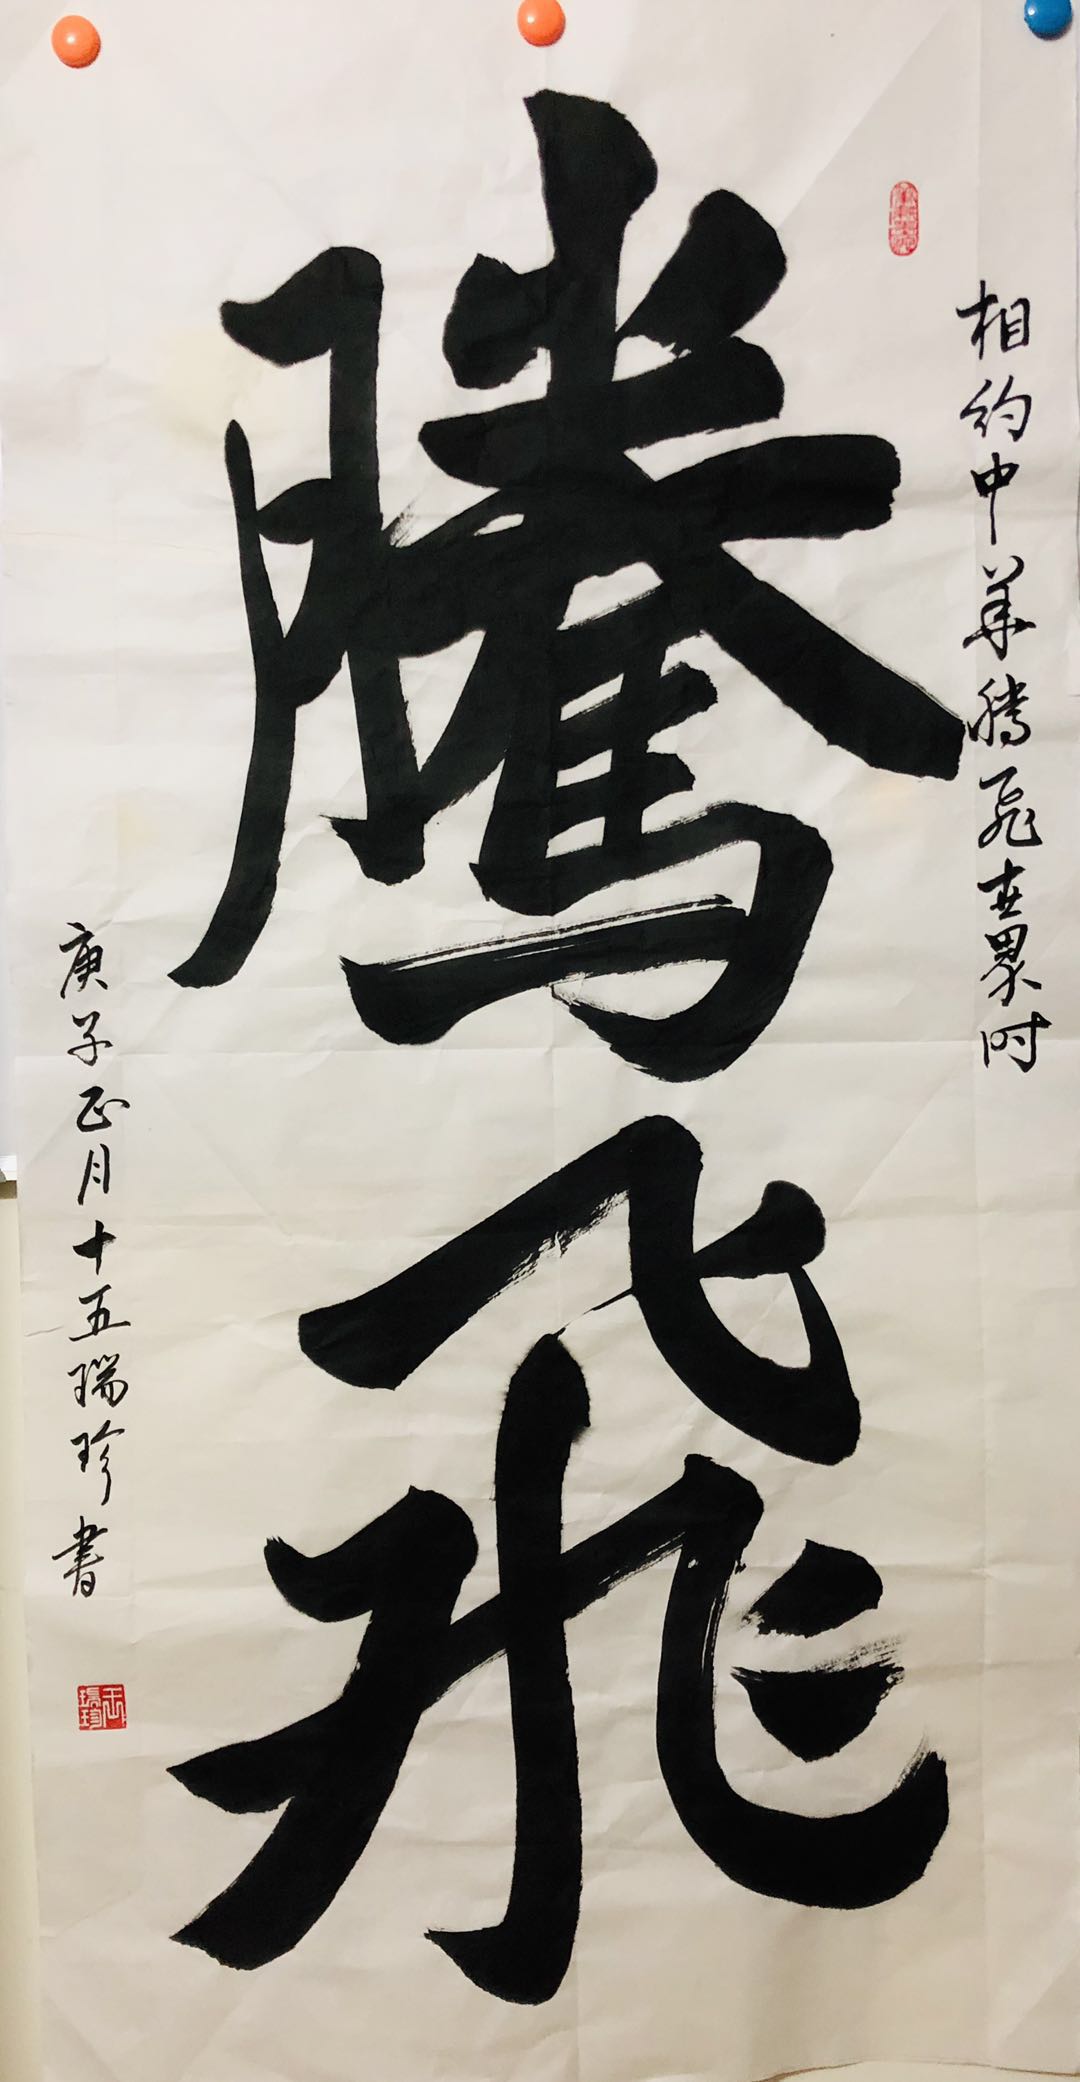 相约中华腾飛世界时
騰飛
庚子正月十五瑞珍書